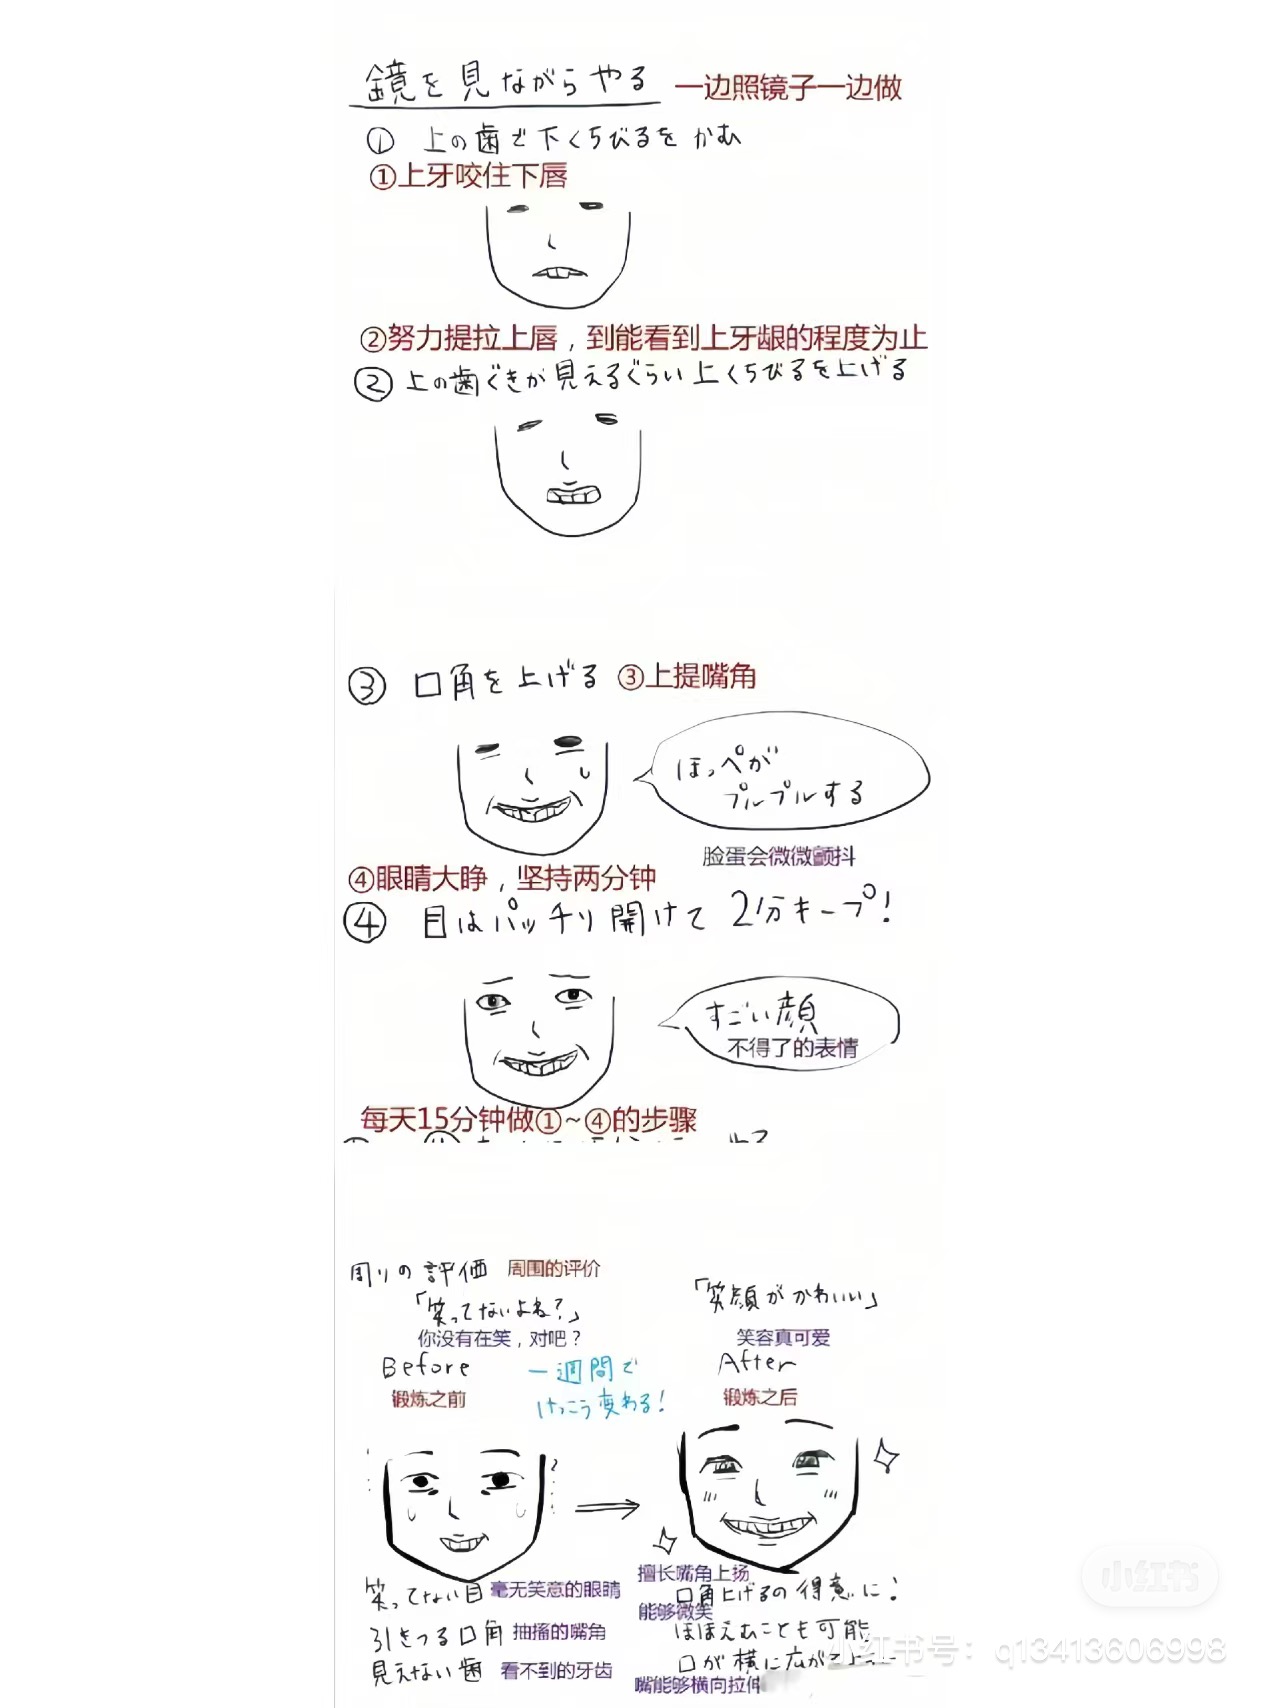 鏡を見ながらやる 一边照镜子一边做
① 上の歯で下くちびるをかむ
①上牙咬住下唇
②努力提拉上唇，到能看到上牙龈的程度为止
② 上の歯ぐきが見えるぐらい上くちびるを上げる
③ 口角を上げる ③上提嘴角
ほっぺが
プルプルする
脸蛋会微微颤抖
④眼睛大睁，坚持两分钟
④ 目はパッチリ開けて 2分キープ!
すごい顔
不得了的表情
每天15分钟做①~④的步骤
周りの評価 周围的评价
「笑ってないよね?」
你没有在笑，对吧？
Before
锻炼之前
一週間で
けっこう変わる!
「笑顔がかわいい」
笑容真可爱
After
锻炼之后
笑ってない目 毫无笑意的眼睛
引きつる口角 抽搐的嘴角
見えない歯 看不到的牙齿
擅长嘴角上扬
口角上げるの得意に!
能够微笑
ほほえむことも可能
口が横に広がる
嘴能够横向拉伸
小红书
小红书号：q13413606998